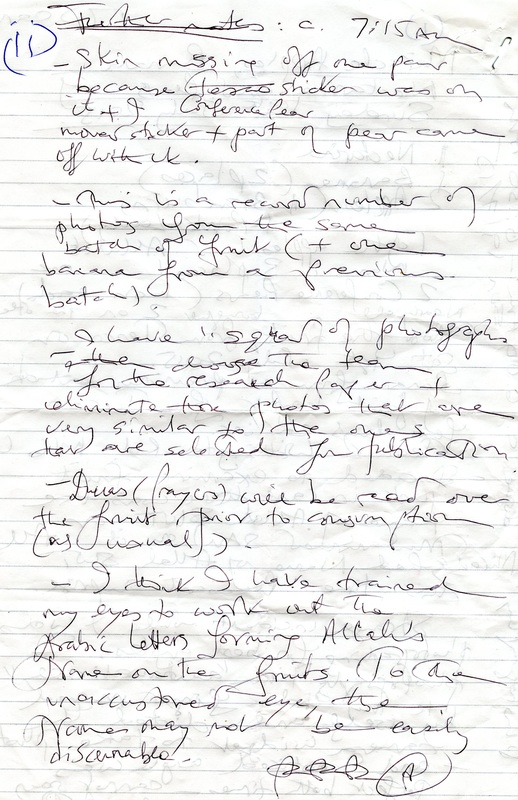 (11)
Further notes: c. 7:15 AM
- Skin missing off one pair
because Tesco sticker was on
it + I Conference Pear
sticker + part of pear came
off with it.
- This is a record number of
photos from the same
batch of fruit (+ one
banana from a previous
batch).
I have "squad" of photographs
- choose the team
for the research paper +
eliminate those photos that are
very similar to the ones
that are selected for publication.
- Duas (prayers) will be read over
the fruit prior to consumption
(as usual).
- I think I have trained
my eyes to work out the
Arabic letters forming Allah's
Name on the fruits. To the
unaccustomed eye, the
Names may not be easily
discernable.